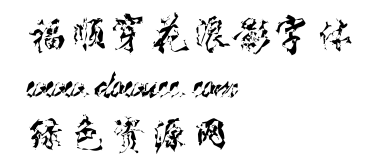 福顺穿花浪影字体
www.downcc.com
绿色资源网